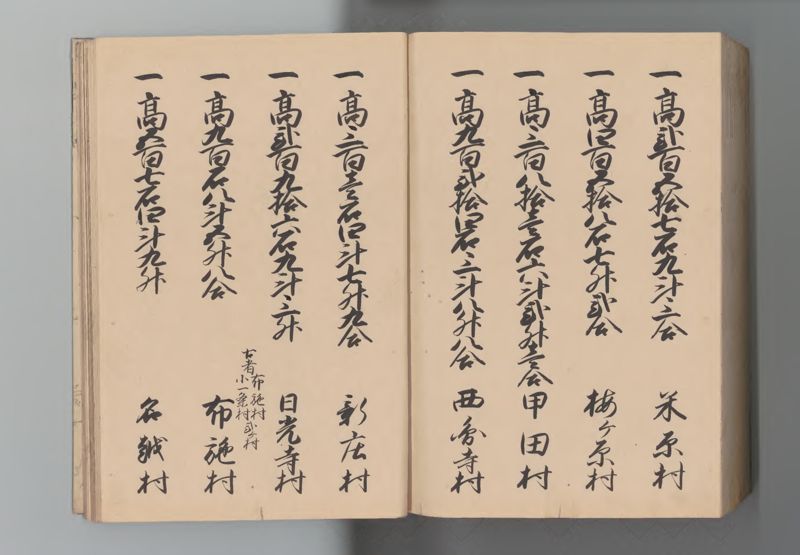 一 高弐百五拾七石九斗三合 米原村
一 高四百五拾八石七升弐合 梅ヶ原村
一 高三百八拾壱石六斗弐升壱合 甲田村
一 高九百弐拾四石三斗八升八合 西円寺村
一 高三百壱石四斗七升九合 新庄村
一 高弐百九拾六石九斗三升 日光寺村
古者布施村
小一条村弐ヶ村
一 高九百石八斗五升八合 布施村
一 高五百七石四斗九升 名越村